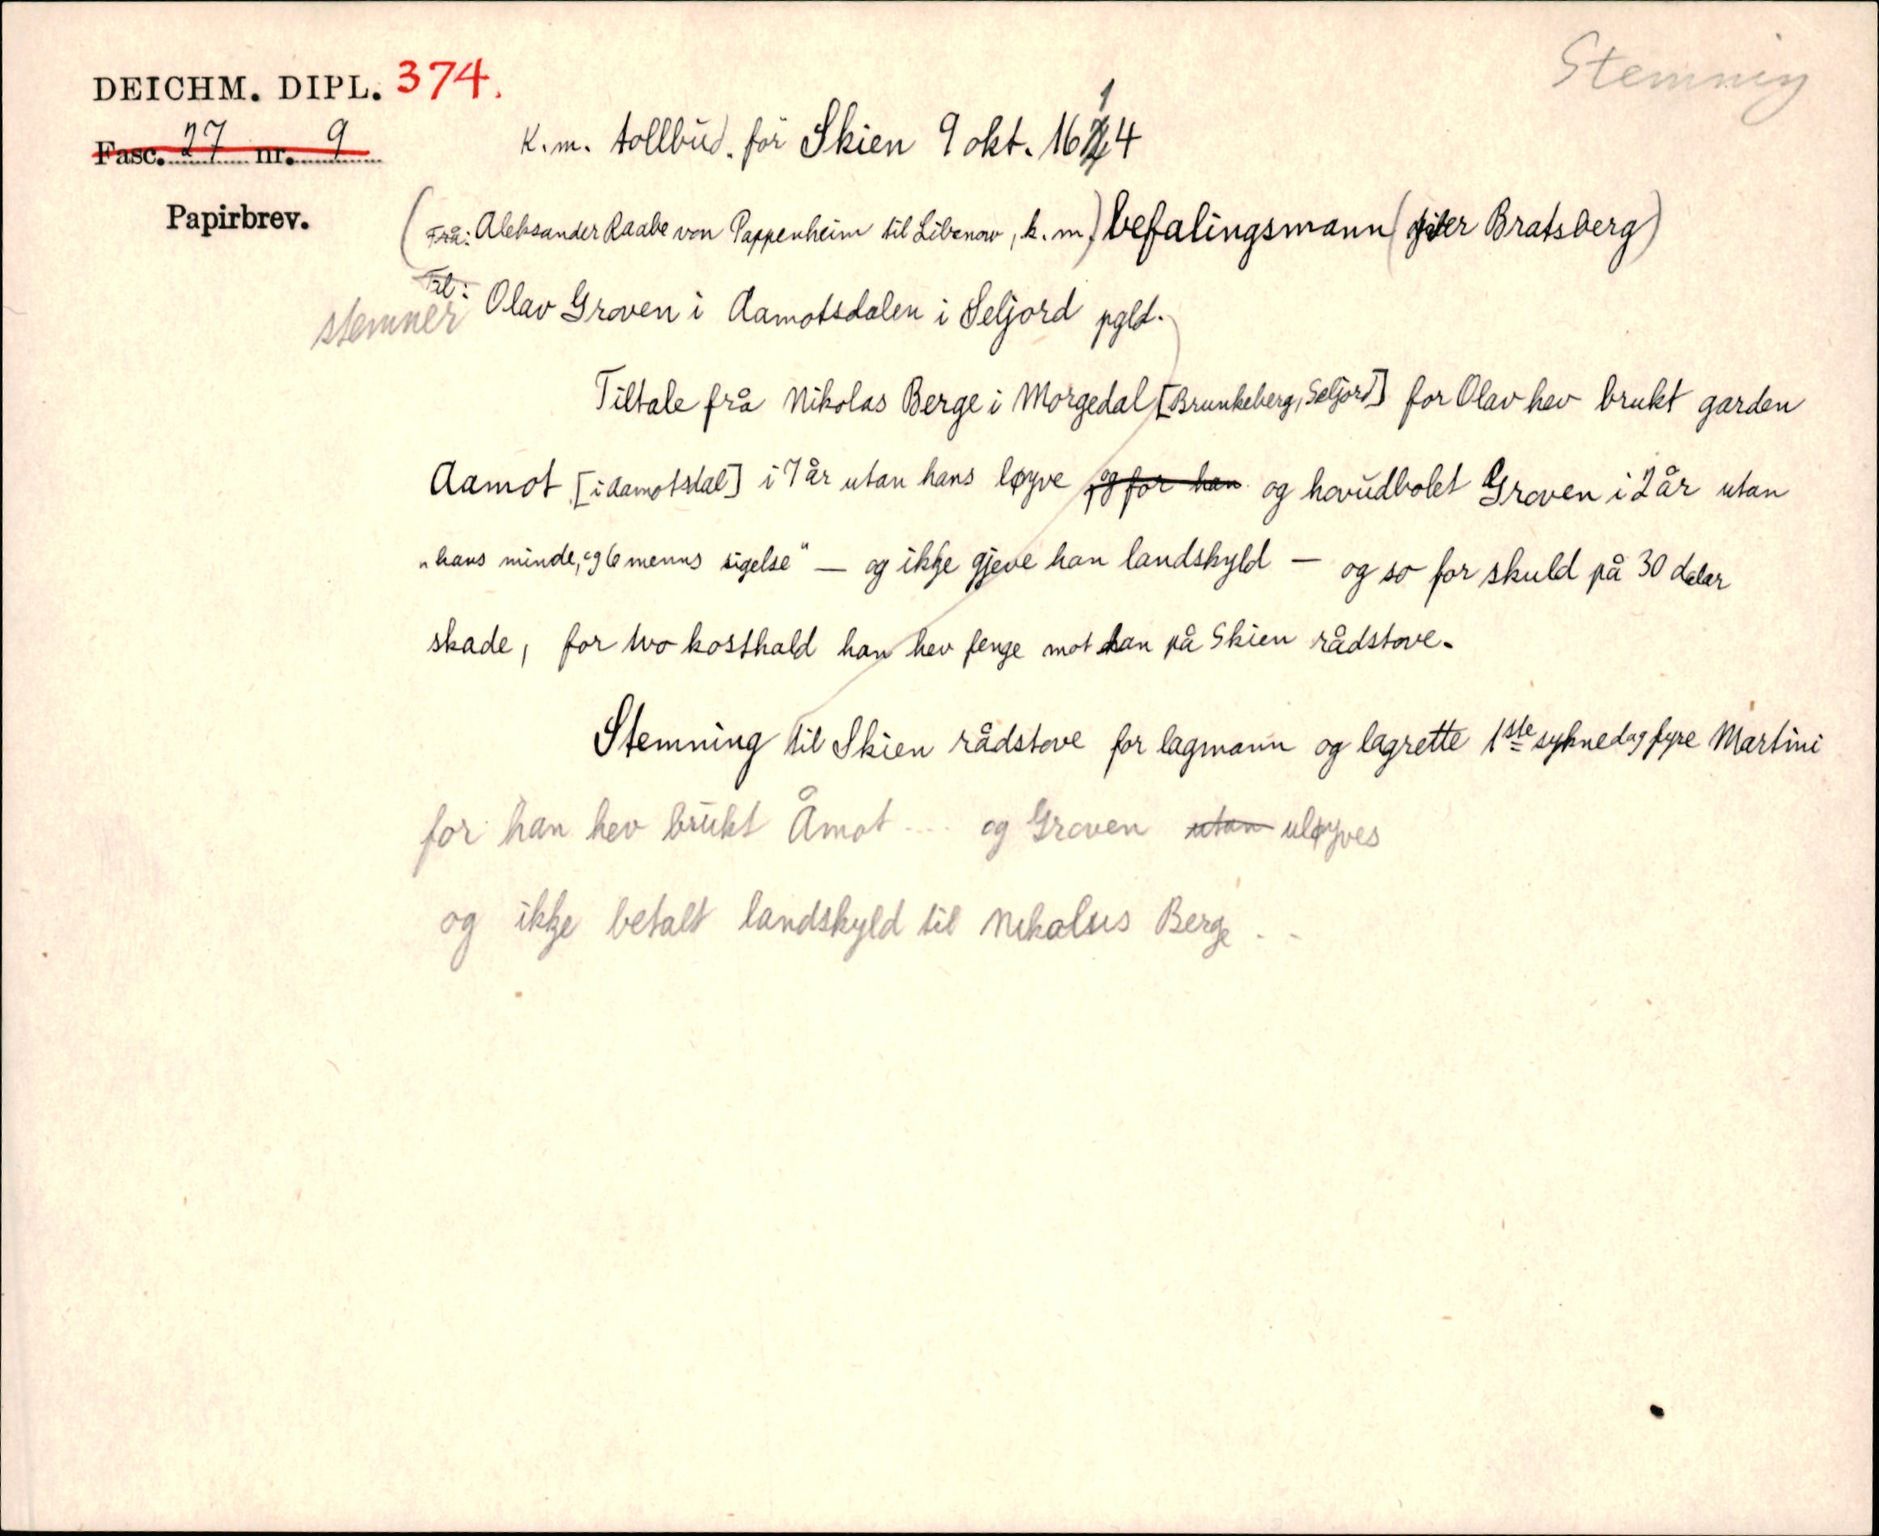 Stemning
DEICHM. DIPL. 374.
Fasc. 27 nr. 9
K.m. tollbud. for Skien 9 okt. 1614
Papirbrev.
(Frå: Aleksander Raabe von Pappenheim til Libenow, k.m.) befalingsmann (yver Bratsberg)
Til:
stemner Olav Groven i Aamotsdalen i Seljord pgld.
Tiltale frå Nikolas Berge i Morgedal [Brunkeberg, Seljord] for Olav hev brukt garden
Aamot [i Aamotsdal] i 7 år utan hans løyve og for han og hovudbolet Groven i 2 år utan
"hans minde, og 6 menns sigelse" — og ikkje gjeve han landskyld — og so for skuld på 30 dalar
skade, for tvo kosthald han hev fenge mot han på Skien rådstove.
Stemning til Skien rådstove for lagmann og lagrette 1ste syknedag fyre Martini
for han hev brukt Åmot ... og Groven utan uløyves
og ikkje betalt landskyld til Nikolas Berge . .